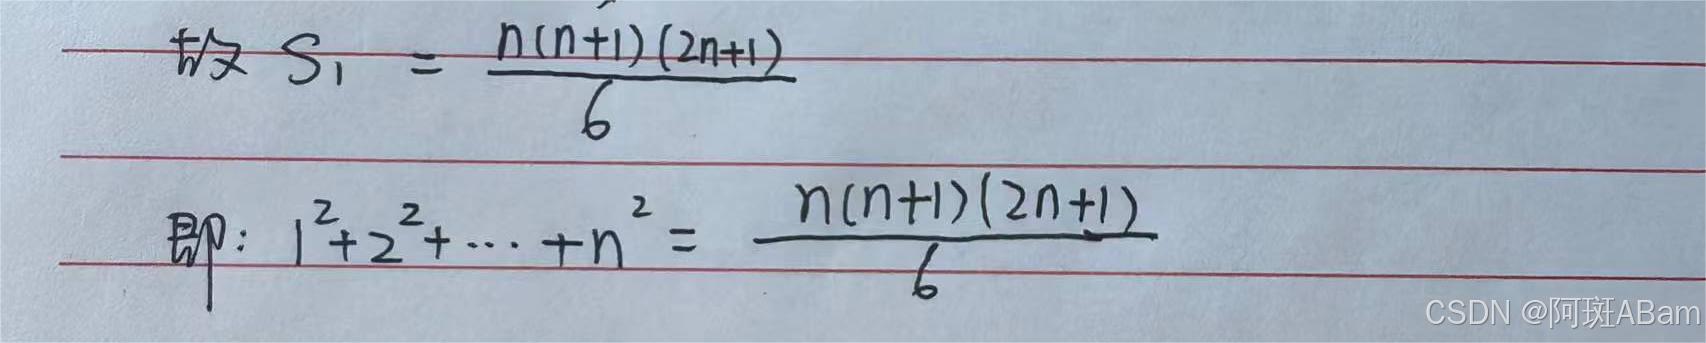 故 S₁ = n(n+1)(2n+1)/6
即: 1²+2²+···+n² = n(n+1)(2n+1)/6
CSDN @阿斑ABam